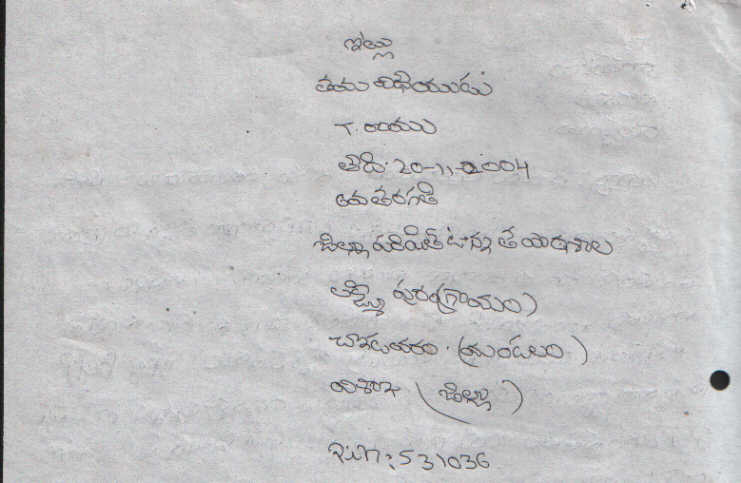 ఇట్లు
తమ విధేయుడు
T. రాము
తేది: 20-11-2004
తరగతి
జిల్లా పరిషత్ ఉన్నత పాఠశాల
లక్ష్మీ పురం (గ్రామం)
(మండలం)
విశాఖ (జిల్లా)
Pin: 531036